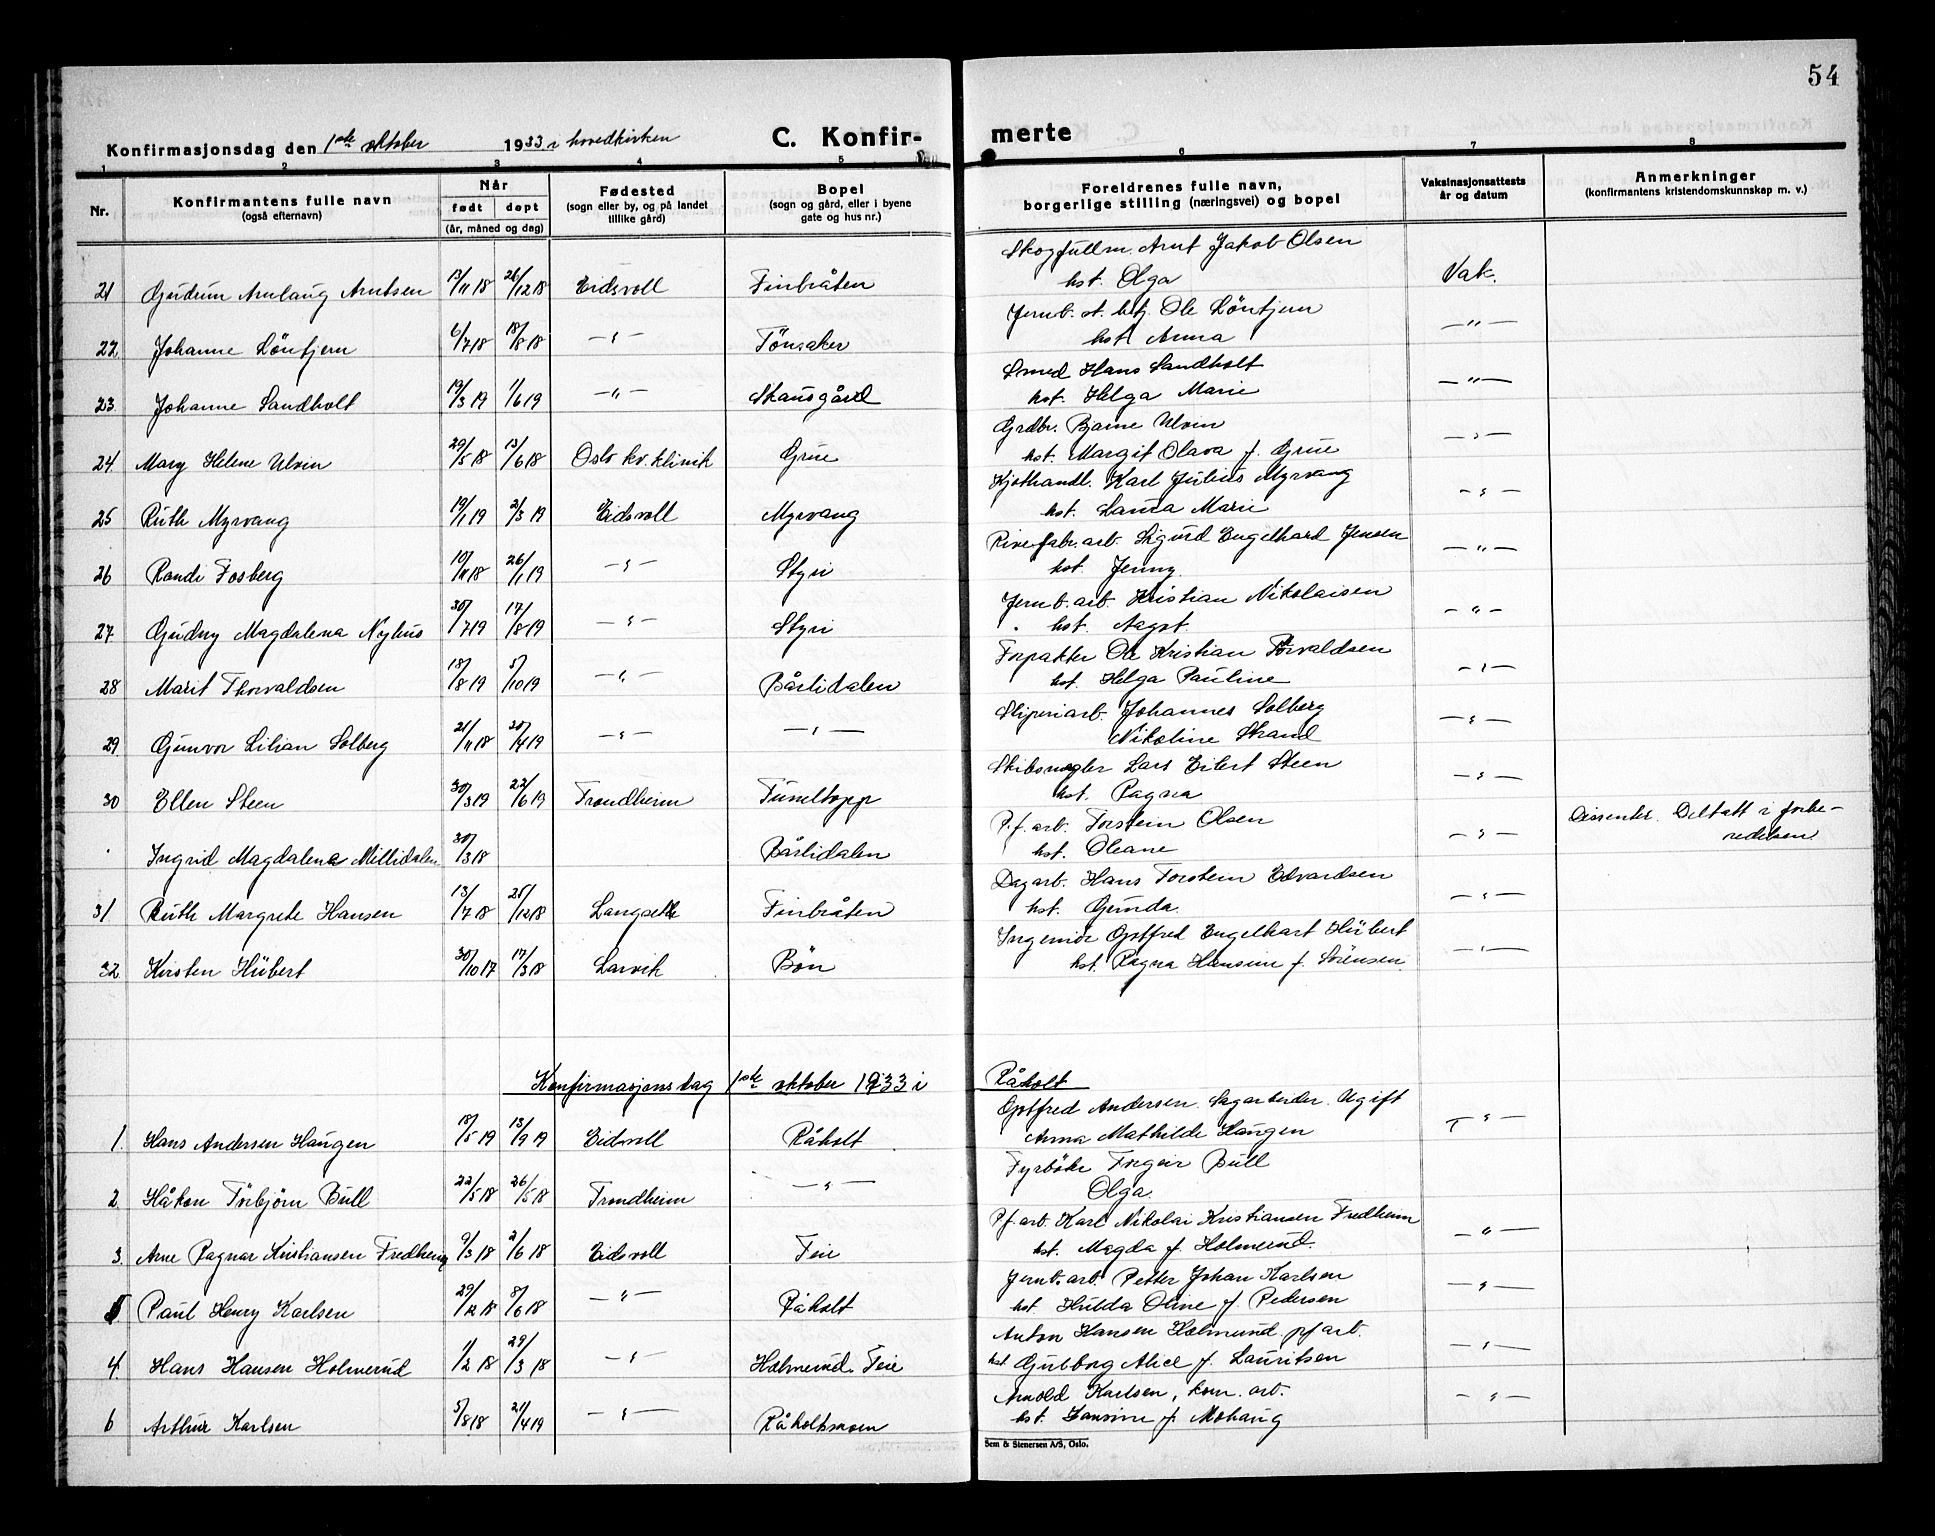 54
Konfirmasjonsdag den 1ste oktober 1933 i hovedkirken
C. Konfir-
merte
1 2 3 4 5 6 7 8
Nr.
Konfirmantens fulle navn
(også efternavn)
Når
født døpt
(år, måned og dag)
Fødested
(sogn eller by, og på landet
tillike gård)
Bopel
(sogn og gård, eller i byene
gate og hus nr.)
Foreldrenes fulle navn,
borgerlige stilling (næringsvei) og bopel
Vaksinasjonsattests
år og datum
Anmerkninger
(konfirmantens kristendomskunnskap m. v.)
Skogfullm. Arnt Jakob Olsen
21 Gudrun Arnlaug Arntsen 13/11 18 26/12 18 Eidsvoll Finbråten hst. Olga Vak.
Jernb. st. btj. Ole Löntjern
22 Johanne Löntjern 6/7 18 18/8 18 —〃— Tönsaker hst. Anna —〃—
Smed Hans Sandholt
23 Johanne Sandholt 19/3 19 1/6 19 —〃— Skausgård hst. Helga Marie —〃—
Grdbr. Bjarne Ulvin
24 Mary Helene Ulvin 29/5 18 13/6 18 Oslo kv. klinik Grue hst. Margit Olava f. Grue —〃—
Kjøthandl. Karl Julius Myrvang
25 Ruth Myrvang 19/1 19 2/3 19 Eidsvoll Myrvang hst. Laura Marie —〃—
Rivefabr. arb. Sigurd Engelhard Jensen
26 Randi Fosberg 10/11 18 26/1 19 —〃— Styri hst. Jenny —〃—
Jernb. arb. Kristian Nikolaisen
27 Gudny Magdalena Nyhus 30/7 19 17/8 19 —〃— Styri hst. Aagot. —〃—
Forpakter Ole Kristian Torvaldsen
28 Marit Thorvaldsen 18/8 19 5/10 19 —〃— Bårlidalen hst. Helga Pauline —〃—
Sliperiarb. Johannes Solberg
29. Gunvor Lilian Solberg 21/11 18 20/4 19 —〃— —〃— Nikoline Strand —〃—
Skibsmegler Lars Eilert Steen
30 Ellen Steen 30/3 19 22/6 19 Trondheim Tuneltopp hst. Ragna —〃—
P.f. arb. Torstein Olsen
Ingrid Magdalena Millidalen 30/3 18 Bårlidalen hst. Oleane —〃— Dissenter. Deltatt i forbe-
redelsen
Dagarb. Hans Torstein Edvardsen
31 Ruth Margrete Hansen 13/7 18 25/12 18 Langsete Finbråten hst. Gunda. —〃—
Ingeniør Gotfred Engelhart Hübert
32. Kirsten Hübert 30/10 17 17/3 18 Larvik Bön hst. Ragna Hansine f. Sörensen. —〃—
Konfirmasjonsdag 1ste oktober 1933 i Råholt
Gotfred Andersen. Sagarbeider. Ugift
1. Hans Andersen Haugen 18/5 19 13/9 19 Eidsvoll Råholt Anna Mathilde Haugen —〃—
Fyrböter Torgeir Bull
2. Håkon Torbjörn Bull 22/5 18 26/5 18 Trondheim —〃— Olga
P.f. arb. Karl Nikolai Kristiansen Fredheim
3. Arne Ragnar Kristiansen Fredheim 9/3 18 2/6 18 Eidsvoll Feie hst. Magda f. Holmerud. —〃—
Jernb. arb. Petter Johan Karlsen
5 Paul Henry Karlsen 29/12 18 8/6 18 —〃— Råholt hst. Hulda Oline f. Pedersen —〃—
Anton Hansen Holmerud. pf arb.
4. Hans Hansen Holmerud 1/2 18 29/3 18 —〃— Holmerud. Feie hst. Gulborg Alice f. Lauritsen —〃—
Arnold Karlsen, kom. arb.
6 Arthur Karlsen 5/8 18 21/4 19 —〃— Råholtmoen hst. Jansine f. Mohaug —〃—
Sem & Stenersen A/S, Oslo.